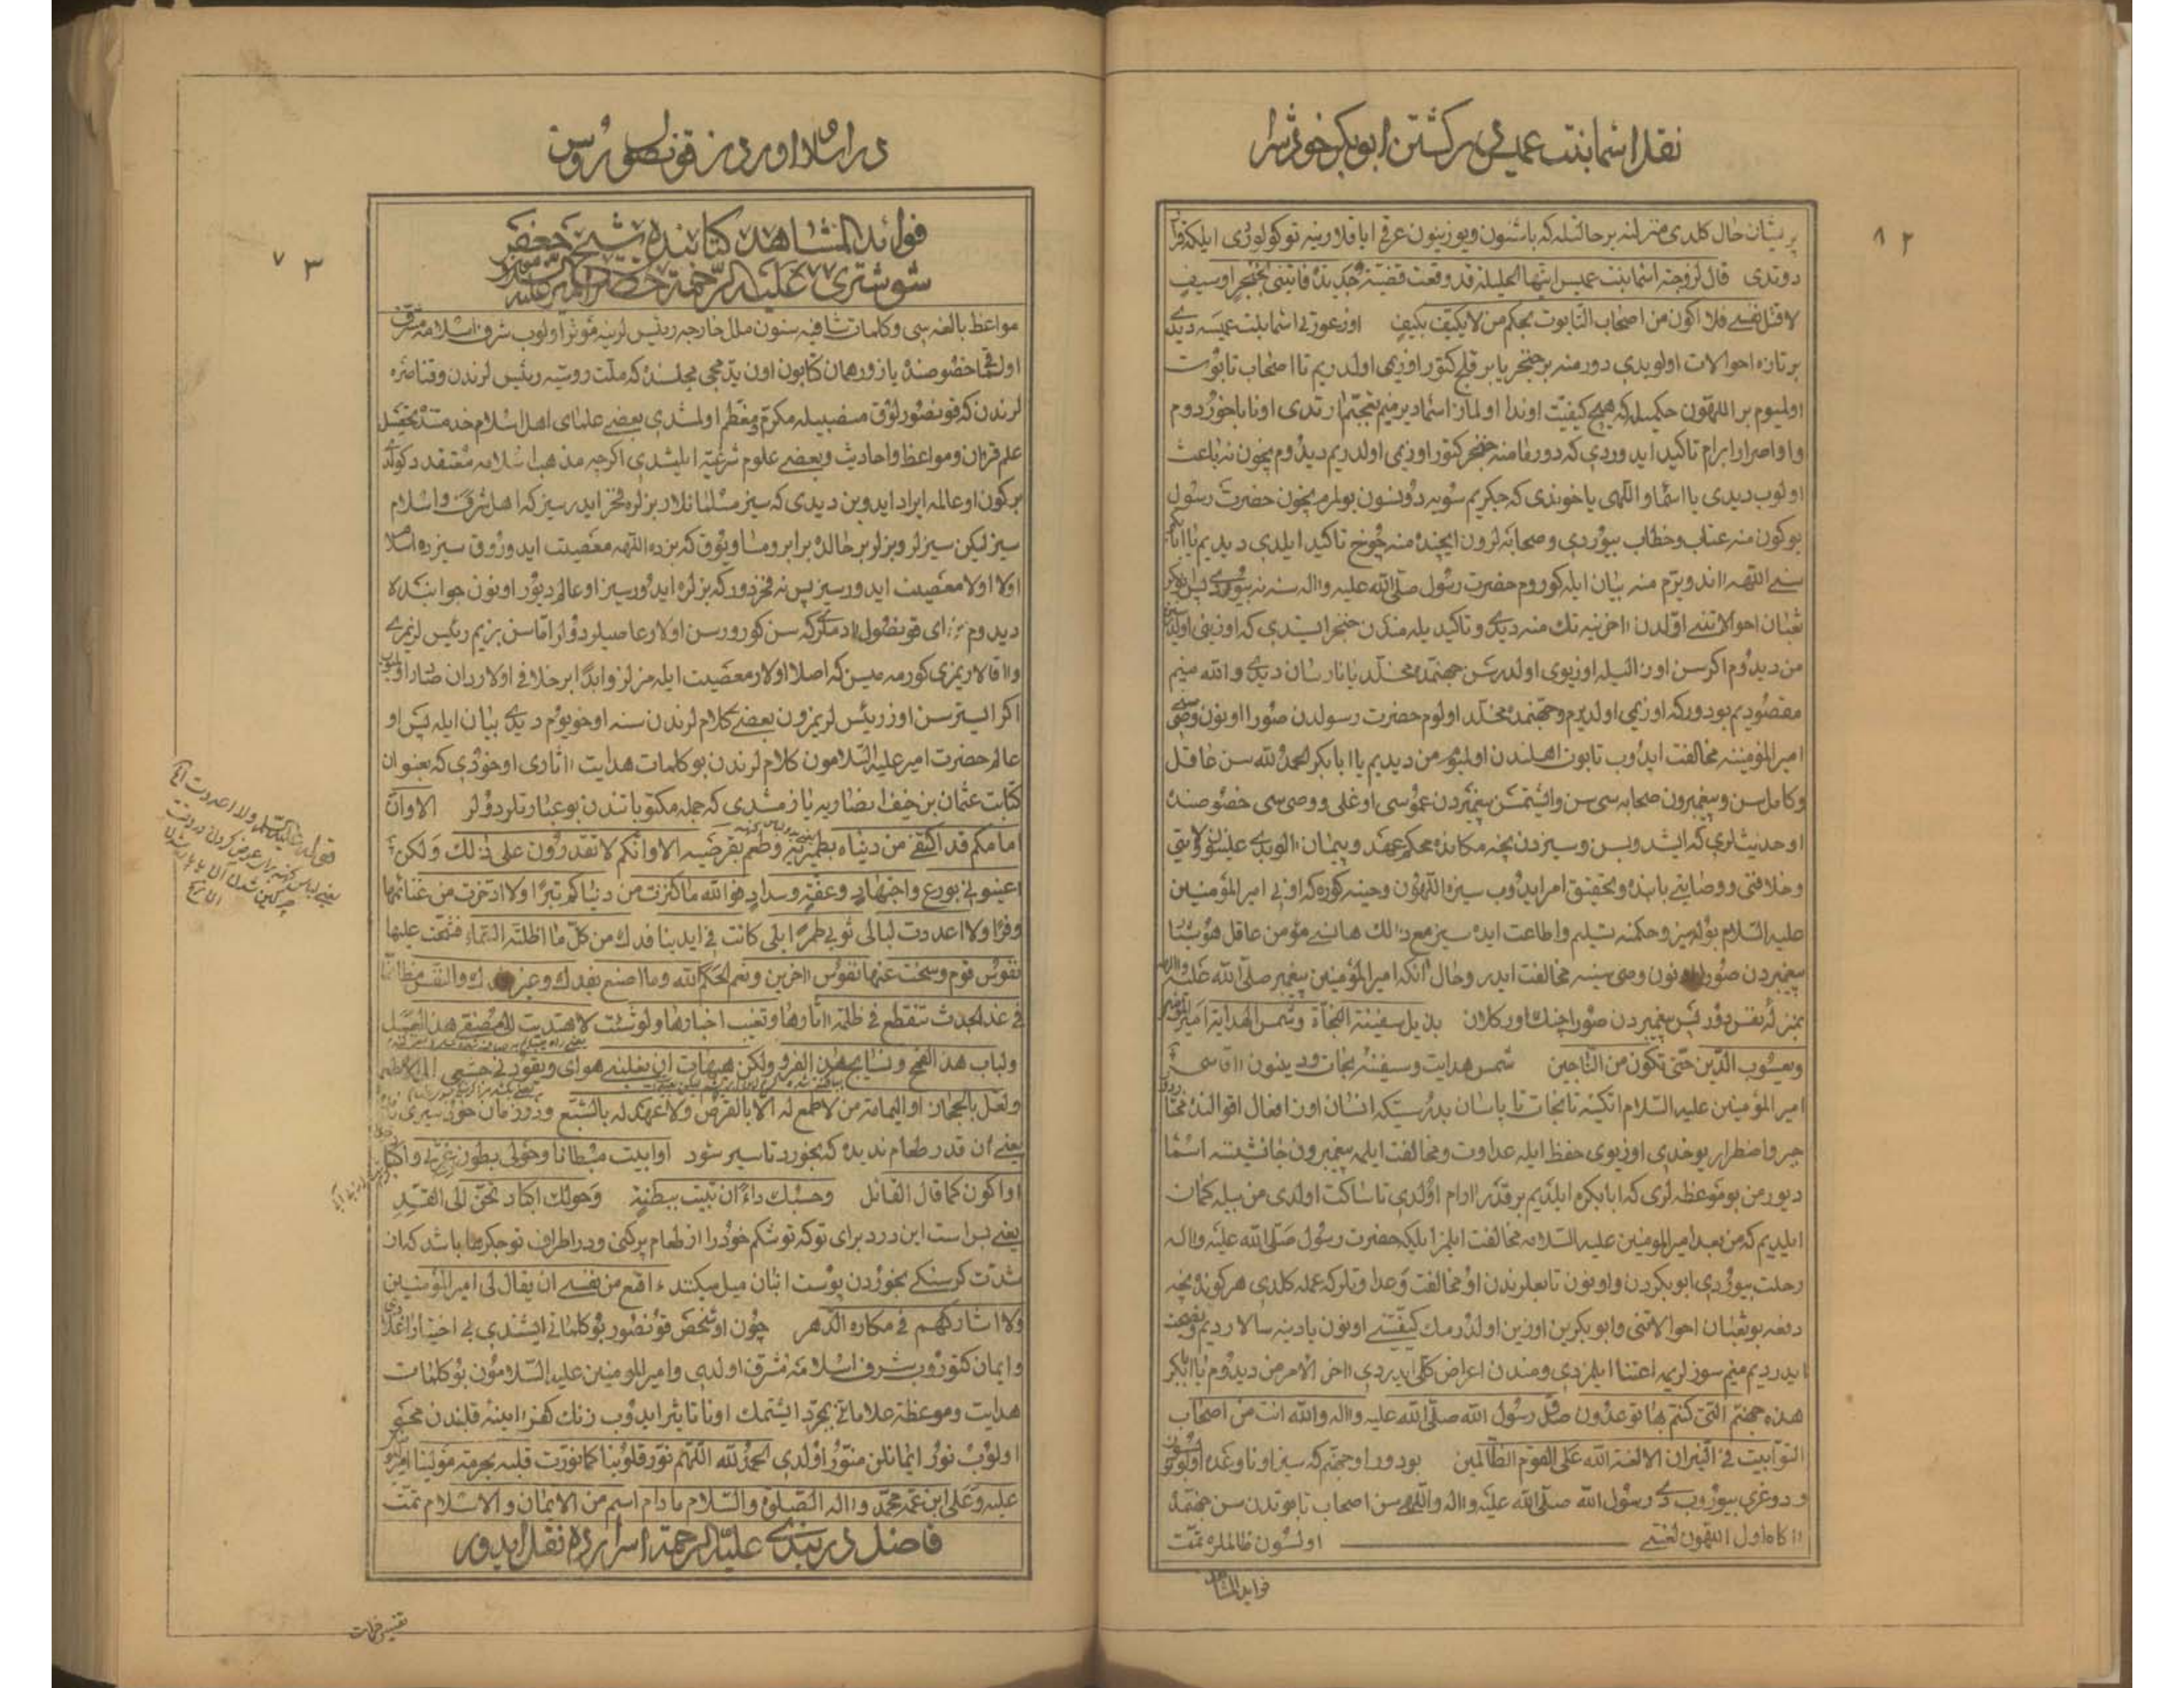 نقل اسما بنت عمیس در کشتن ابوبکر خود را
۸۲
پریشان حال کلدی منزلنه بر حالتیله که باشنون ویوزینون عرقی ایاقلارینه توکولوردی ایلکه قرار
دوتدی قال لزوجته اسما بنت عمیس ایتها الحلیلة قد وقعت قضیة جدیدة فاتینی بخنجر او سیف
لاقتل نفسی فلا اکون من اصحاب التابوت بحکم من لایکیف بکیف اوز عورتی اسما بنت عمیسه دیدی
بر تازه احوالات اولوبدی دور منه بر خنجر یا بر قلج کتور اوزیمی اولدریم تا اصحاب تابوت
اولمیوم بر اللهون حکمیله که هیچ کیفیت اوندا اولماز اسما دیر منیم تعجبیم ارتدی اونا باخوردوم
و او اصرار ابرام تاکید ایدوردی که دور ما منه خنجر کتور اوزیمی اولدریم دیدوم نچون نه باعث
اولوب دیدی یا اسما و اللهی یاخوندی که جکریم سویه دونسون بولمرم نچون حضرت رسول
بو کون منه عتاب و خطاب بیوردی و صحابه لرون ایچنده منه چوخ تاکید ایلدی دیدیم یا ابابکر
سنی اللهه اند ویرم منه بیان ایله کوروم حضرت رسول صلی الله علیه و اله سنه نه بیوردی پس ابوبکر
ثعبان احوالاتنی اولدن اخرینه تک منه دیدی و تاکیدیله مندن خنجر ایستدی که اوزینی اولدرسون
من دیدوم اکر سن اوز الیله اوزیوی اولدرسن جهنمده مخلد یانارسان دیدی والله منیم
مقصودیم بودور که اوزیمی اولدیرم و جهنمده مخلد اولوم حضرت رسولدن صورا اونون وصی
امیر المؤمنینه مخالفت ایدوب تابوت اهلندن اولمیوم من دیدیم یا ابابکر الحمد لله سن عاقل
و کامل سن و پیغمبرون صحابه سی سن و ایشتمشن پیغمبردن عموسی اوغلی و وصی سی خصوصنده
او حدیثلری که ایشدوبسن و سیزدن نچه مکانده محکم عهد و پیمان الوبدی علینون ولایتی
و خلافتی و وصایتی بابنده و تحقیق امر ایدوب سیزه اللهون وحینه کوره که اوزی امیر المؤمنین
علیه السلام بولمیز و حکمنه تسلیم و اطاعت ایده سیز مع ذالک هانسی مؤمن عاقل هوشیا
پیغمبردن صورا اونون وصی سینه مخالفت ایدر و حال آنکه امیر المؤمنین پیغمبر صلی الله علیه و اله
بمنزله نفس دور پس پیغمبردن صورا چنک اور کلان بذیل سفینة النجاة و شمس الهدایة امیر المؤمنین
و یعسوب الدین حتی تکون من الناجین شمس هدایت و سفینه نجات و دینون اقاسی
امیر المؤمنین علیه السلام اتکنه تا نجات تاپاسان بدرستیکه انسان اوز افعال اقوالنده مختار
جبر و اضطرار یوخدی اوزیوی حفظ ایله عداوت و مخالفت ایلمه پیغمبرون جانشینه اسما
دیور من بو موعظه لری که ابابکره ایلدیم بر قدر ارام اولدی تا ساکت اولدی من بیله کمان
ایلدیم که من بعد امیر المومنین علیه السلامه مخالفت ایلمز ایلکه حضرت رسول صلی الله علیه و اله
رحلت بیوردی ابوبکردن و اونون تابعلرندن او مخالفت و عداوتلر که عمله کلدی هر کونده نچه
دفعه بو ثعبان احوالاتنی و ابوبکرین اوزین اولدرمک کیفیتنی اونون یادینه سالاردیم و نصیحت
ایدردیم منیم سوزلریمه اعتنا ایلمزدی و مندن اعراض کلی ایدردی اخر الامر من دیدوم یا ابابکر
هذه جهنم التی کنتم بها توعدون صدق رسول الله صلی الله علیه و اله والله انت من اصحاب
التوابیت فی النیران الا لعنة الله علی القوم الظالمین بودور او جهنم که سیز اونا وعده اولونوب
و دوغری بیوروب دی رسول الله صلی الله علیه و اله واللهی سن اصحاب تابوتدن سن جهنمده
اکاه اول اللهون لعنتی اولسون ظالملره تمت
فواید المشاهد
در اسلام اوردن قونصول روس
۷۳
فوائد المشاهد کتابنده شیخ جعفر
شوشتری علیه الرحمة حضرت امیر علیه
مواعظ بالغه سی و کلمات شافیه سنون ملل خارجه رئیس لرینه مؤثر اولوب شرف اسلامه مشرف
اولماقی خصوصنده یازور همان کتابون اون یدمجی مجلسنده که ملت روسیه رئیس لرندن و قناصره
لرندن که قونصورلوق منصبیله مکرم و معظم اولمشدی بعضی علمای اهل اسلام خدمتنده تحصیل
علم قران و مواعظ و احادیث و بعضی علوم شرعیه ایلمشدی اکرچه مذهب اسلامه معتقد دکولدی
بر کون او عالمه ایراد ایدوبن دیدی که سیز مسلمانلار بزلره فخر ایدرسیز که اهل شرف و اسلام
سیز لیکن سیزلر و بزلر بر حالده برابر و مساویوق که بزده اللهه معصیت ایدوروق سیزده اسلام
اولا اولا معصیت ایدورسیز پس نه فخردور که بزلره ایدورسیز او عالم دیور اونون جوابنده
دیدوم ای قونصول ادملر که سن کورورسن اولار عاصیلردولر اما سن بزیم رئیس لریمزی
و اقالاریمزی کورمه میسن که اصلا اولار معصیت ایله مزلر و ابدا بر خلافی اولاردان صادر اولمیوب
اکر ایسترسن اوز رئیس لریمزون بعضی کلام لرندن سنه اوخویوم دیدی بیان ایله پس او
عالم حضرت امیر علیه السلامون کلام لرندن بو کلمات هدایت اثاری اوخودی که بعنوان
کتابت عثمان بن حنیف انصاریه یازمشدی که جمله مکتوباتندن بو عبارتلردولر الا و ان
امامکم قد اکتفی من دنیاه بطمریه و طعمه بقرصیه الا و انکم لا تقدرون علی ذلک و لکن
اعینونی بورع و اجتهاد و عفة و سداد فوالله ما کنزت من دنیاکم تبرا ولا ادخرت من غنائمها
وفرا ولا اعددت لبالی ثوبی طمرا بلی کانت فی ایدینا فدک من کل ما اظلته السماء فشحت علیها
نفوس قوم و سخت عنها نفوس اخرین و نعم الحکم الله وما اصنع بفدک و غیر فدک والنفس مظانها
فی غد الجدث تنقطع فی ظلمته اثارها و تغیب اخبارها ولو شئت لاهتدیت الی مصفی هذا العسل
ولباب هذا القمح و نسایج هذا القز ولکن هیهات ان یغلبنی هوای و یقودنی جشعی الی الاطعمة
ولعل بالحجاز او الیمامة من لا طمع له الا بالقرص ولا عهد له بالشبع
یعنی ان قدر طعام ندیده که بخورد تا سیر شود او ابیت مبطانا و حولی بطون غرثی و اکباد
او اکون کما قال القائل وحسبک داء ان تبیت ببطنة وحولک اکباد تحن الی القد
یعنی بس است این درد برای تو که تو شکم خود را از طعام پر کنی و در اطراف تو جکرها باشد که از
شدت کرسنکی بخوردن پوست انبان میل میکنند ء اقنع من نفسی ان یقال لی امیر المؤمنین
ولا اشارکهم فی مکاره الدهر چون او شخص قونصور بو کلماتی ایشتدی بی اختیار اغلادی
و ایمان کتوروب شرف اسلامه مشرف اولدی و امیر المومنین علیه السلامون بو کلمات
هدایت و موعظه علاماتی بمجرد ایشتمک اونا تاثیر ایدوب زنک کفر اینه قلبندن محو
اولوب نور ایمانلن منور اولدی الحمد لله اللهم نور قلوبنا کما نورت قلبه بحرمة مولینا امیر المؤمنین
علیه و علی ابن عمه محمد و اله الصلوة والسلام مادام اسم من الایمان و الاسلام تمت
فاضل دربندی علیه الرحمة اسرارده نقل ایدور